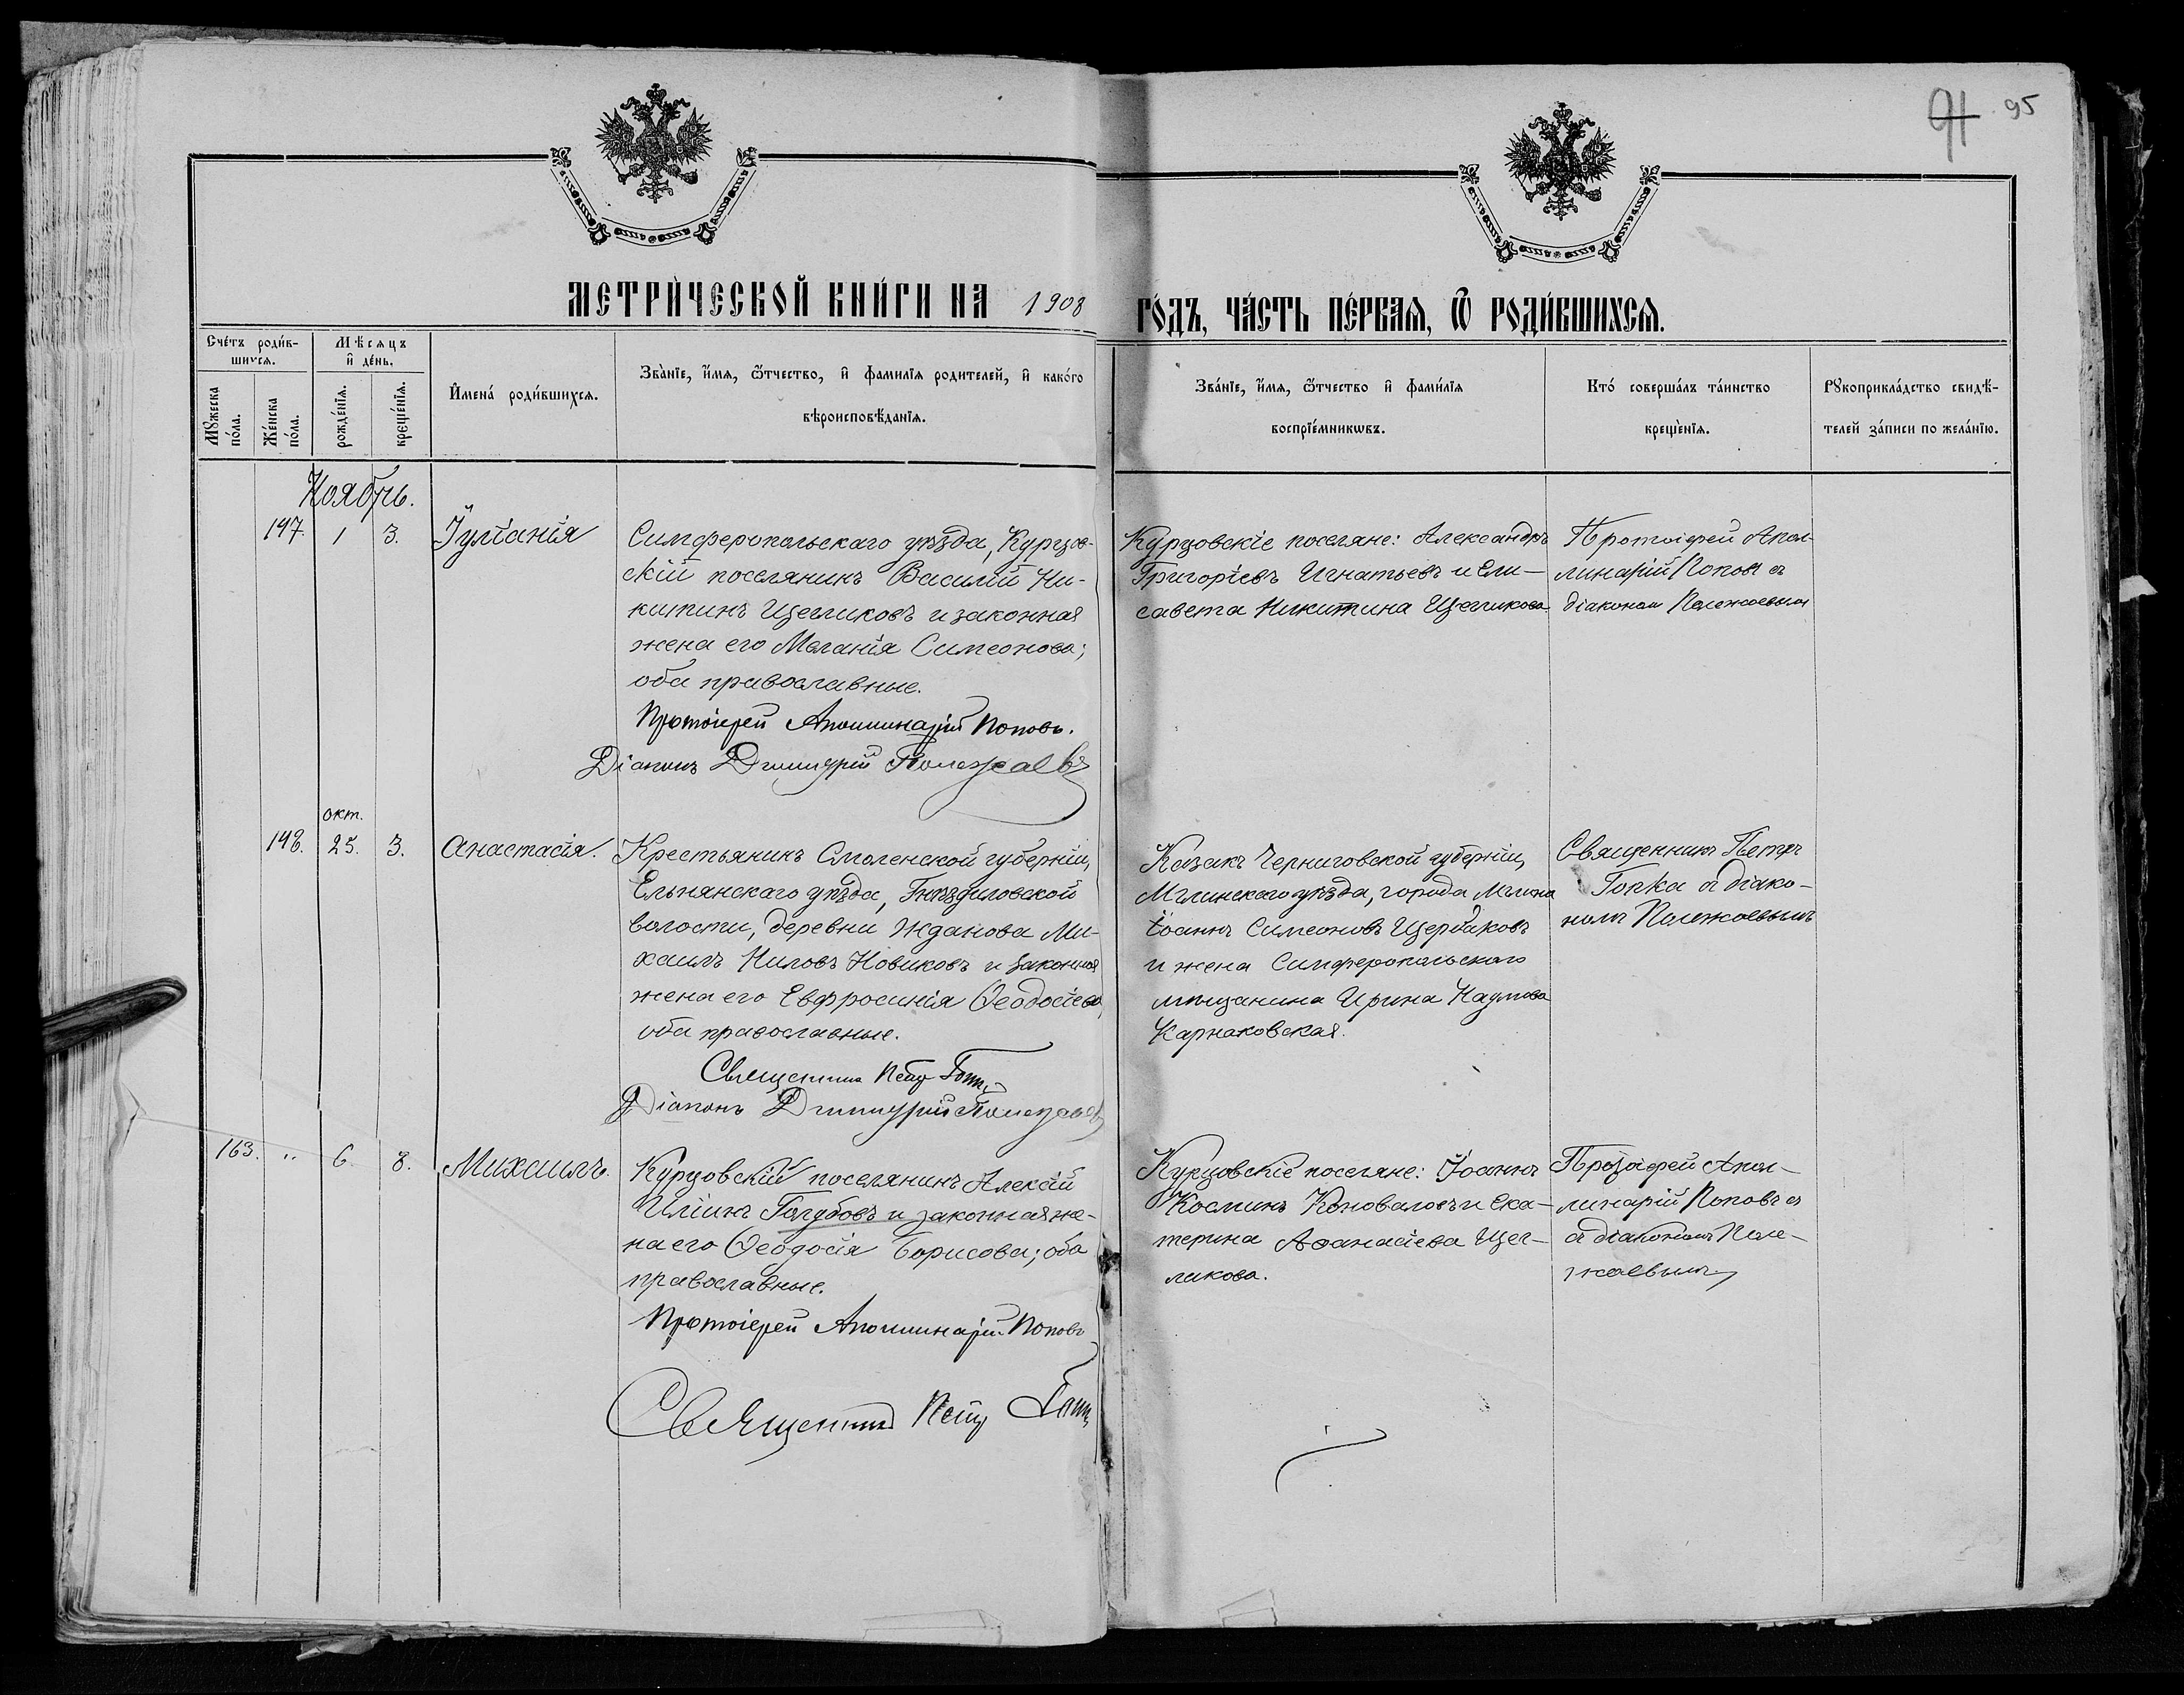 91 95
МЕТРИ́ЧЕСКОЙ КНИ́ГИ НА 1908 ГО́ДЪ, ЧА́СТЬ ПЕ́РВАѦ, Ѿ РОДИ́ВШИХСѦ.
Сче́тъ роди́в-
шихсѧ.
Мꙋжеска
по́ла.
Же́нска
по́ла.
Мѣ́сѧцъ
и҆ де́нь.
рожде́нїѧ.
креще́нїѧ.
И҆мена́ роди́вшихсѧ.
Зва́нїе, и҆́мѧ, ѻ҆́тчество, и҆ фамилїѧ родителей, и҆ како́гѡ
вѣроисповѣ́данїѧ.
Зва́нїе, и҆́мѧ, ѻ҆́тчество и҆ фами́лїѧ
воспрїе́мникѡвъ.
Кто́ соверша́лъ та́инство
креще́нїѧ.
Рꙋкоприкла́дство свидѣ́-
телей за́писи по жела́нїю.
Ноябрь.
147. 1 3. Іуліанія
Симферопольскаго уѣзда, Курцов-
скій поселянинъ Василій Ни-
китинъ Щегликовъ и законная
жена его Меланія Симеонова;
оба православные.
Протоіерей Аполлинарій Поповъ.
Діаконъ Димитрій Полежаевъ
Курцовскіе поселяне: Александръ
Григоріевъ Игнатьевъ и Ели-
савета Никитина Щегликова.
Протоіерей Апол-
линарій Поповъ съ
діакономъ Полежаевымъ
окт.
148. 25. 3. Анастасія.
Крестьянинъ Смоленской губерніи,
Ельнянскаго уѣзда, Гнѣздиловской
волости, деревни Жданова Ми-
хаилъ Ниловъ Новиковъ и законная
жена его Евфросинія Ѳеодосіева,
оба православные.
Священникъ Петръ
Діаконъ Димитрій Полежаевъ
Казакъ Черниговской губерніи,
Мглинскаго уѣзда, города Мглина
Іоаннъ Симеоновъ Щербаковъ
и жена Симферопольскаго
мѣщанина Ирина Наумова
Карнаковская.
Священникъ Петръ
Гопка съ діако-
номъ Полежаевымъ
163. " 6. 8. Михаилъ.
Курцовскій поселянинъ Алексій
Иліинъ Голубовъ и законная же-
на его Ѳеодосія Борисова; оба
православные.
Протоіерей Аполлинарій Поповъ
Священникъ Петръ
Курцовскіе поселяне: Іоаннъ
Косминъ Коноваловъ и Ека-
терина Аѳанасіева Щег-
ликова.
Протоіерей Апол-
линарій Поповъ съ
съ діакономъ Поле-
жаевымъ